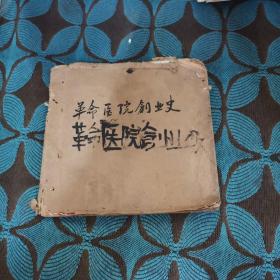 革命医院創业史
革命医院創业史